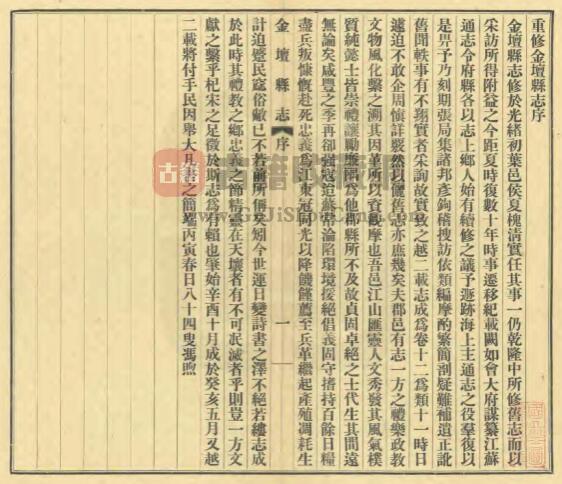 重修金壇縣志序
金壇縣志修於光緒初葉邑侯夏槐淸實任其事一仍乾隆中所修舊志而以
采訪所得附益之今距夏時復數十年時事遷移紀載闕如會大府謀纂江蘇
通志令府縣各以志上鄉人始有續修之議予遯跡海上主通志之役羣復以
是畀予乃刻期張局集諸邦彥鉤稽搜訪依類編摩酌繁簡剖疑難補遺正訛
舊聞軼事有不翔實者采詢故實效之越二載志成爲卷十二爲類十一時日
遽迫不敢企周愼詳覈然以儷舊志亦庶幾矣夫郡邑有志一方之禮樂政敎
文物風化繫之溯其因革所以資觀摩也吾邑江山匯靈人文秀發其風氣樸
質純懿士皆崇禮讓勵廉隅爲他郡縣所不及故貞固卓絕之士代生其間遠
無論矣咸豐之季再卻強寇迫蘇常淪陷環境援絕倡義固守搘持百餘日糧
盡兵叛慷慨赴死忠義爲江東冠同光以降饑饉薦至兵革繼起產殖凋耗生
金壇縣志 序 一
計迫蹙民窳俗敝已不若前所偁矣矧今世運日變詩書之澤不絕若縷志成
於此時其禮敎之鄉忠義之節精靈在天壤者有不可泯滅者乎則豈一方文
獻之繫乎杞宋之足徵於斯志爲有賴也肇始辛酉十月成於癸亥五月又越
二載將付手民因舉大凡書之簡端丙寅春日八十四叟馮煦
古籍
www.GuJiShuCang.com